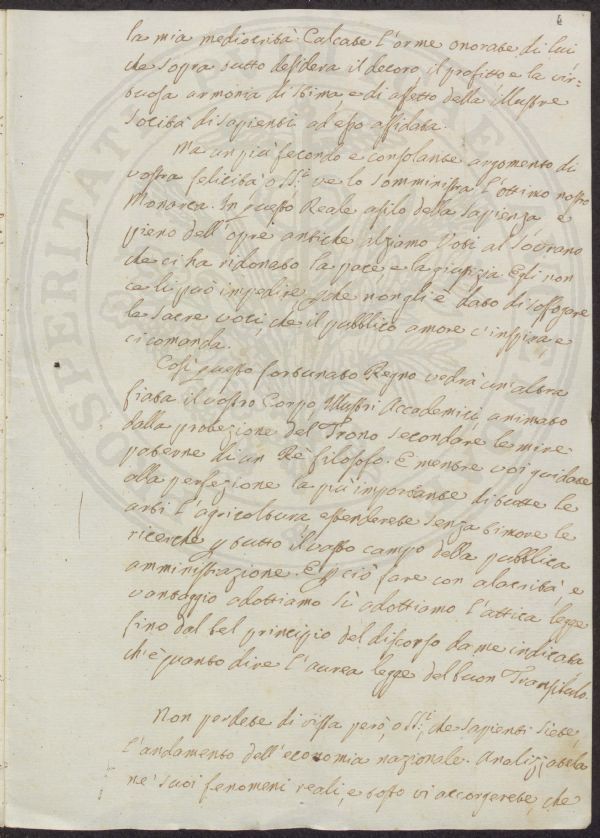 la mia mediocrità. Calcate l'orme onorate di lui
che sopra tutto desidera il decoro, il profitto e la vir=
tuosa armonia di stima e di affetto della illustre
società di sapienti ad esso affidata.
Ma un più fecondo e consolante argomento di
vostra felicità o SS.i ve lo somministra l'ottimo nostro
Monarca. In questo Reale asilo della Sapienza e
pieno dell'opre antiche alziamo voti al Sovrano
che ci ha ridonato la pace e la giustizia. Egli non
ce li può impedire, che non gli è dato di soffogare
le sacre voci, che il pubblico amore c'inspira e
ci comanda.
Così questo fortunato Regno vedrà un'altra
fiata il vostro Corpo Illustri Accademici animato
dalla protezione del Trono secondare le mire
paterne di un Re filosofo. E mentre voi guidate
alla perfezione la più importante di tutte le
arti l'agricoltura estenderete senza timore le
ricerche p tutto il vasto campo della pubblica
amministrazione. E p ciò fare con alacrità, e
vantaggio adottiamo sì adottiamo l'attica legge
fino dal bel principio del discorso da me indicata
ch'è quanto dire l'aurea legge del buon Transibulo.
Non perdete di vista però, o SS.i, che sapienti siete,
l'andamento dell'economia nazionale. Analizzatela
ne' suoi fenomeni reali, e tosto vi accorgerete, che